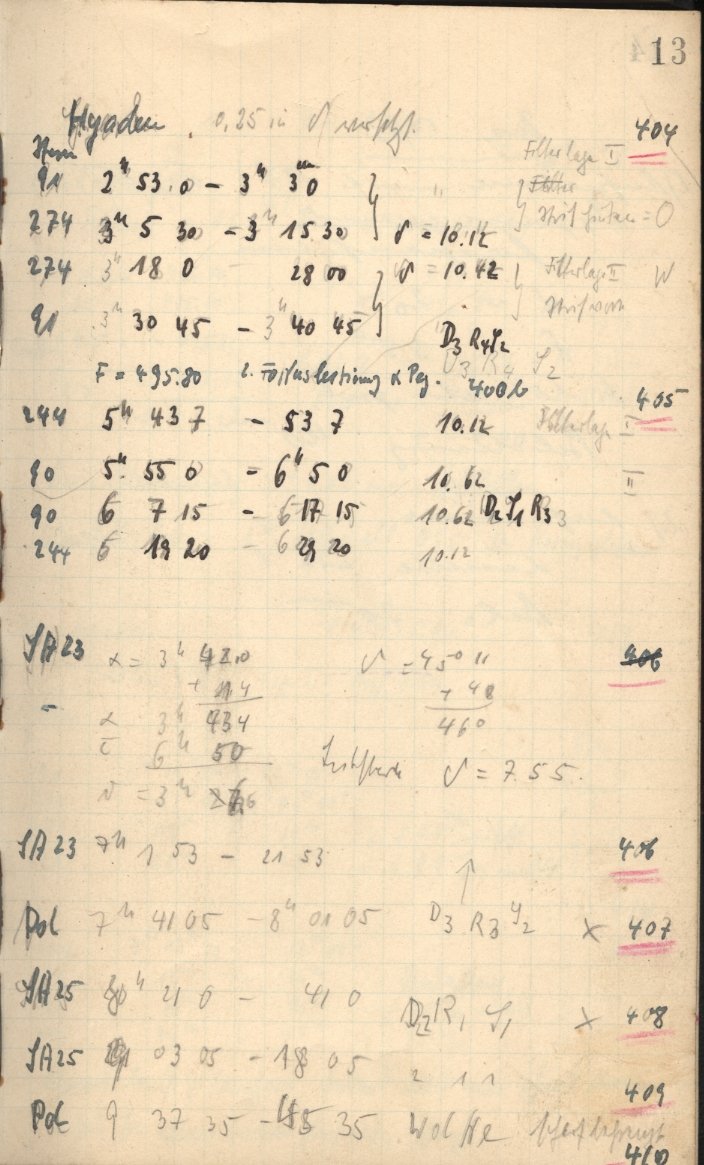 13
Hyaden, 0,25 in δ versetzt.
404
Stern
Filterlage I
91 2ʰ 53.0 – 3ʰ 3ᵐ0
274 3ʰ 5 30 – 3ʰ 15 30 δ = 10.12 = 0
274 3ʰ 18 0 28 00 δ = 10.42 Filterlage II W
91 3ʰ 30 45 – 3ʰ 40 45
D3 R4 Y2
F = 495.80 2. α Peg. 400b
D3 R4 Y2
405
244 5ʰ 43 7 – 53 7 10.12 Filterlage I
90 5ʰ 55 0 – 6ʰ 5 0 10.62 II
90 6 7 15 – 6 17 15 10.62 D2 Y1 R3
244 6 19 20 – 6 29 20 10.12
SA 23 α = 3ʰ 42.0 δ = 45° 11 406
+ 1.4 + 48
– α 3ʰ 434 460
τ 6ʰ 50
δ = 7.55.
SA 23 7ʰ 1 53 – 21 53 406
↑
Pol 7ʰ 41 05 – 8ʰ 01 05 D3 R3 Y2 × 407
SA 25 8ʰ 21 0 – 41 0 D2 R1 Y1 × 408
SA 25 03 05 – 18 05 2 1 1
409
Pol 9 37 35 – 35 Wolke
410